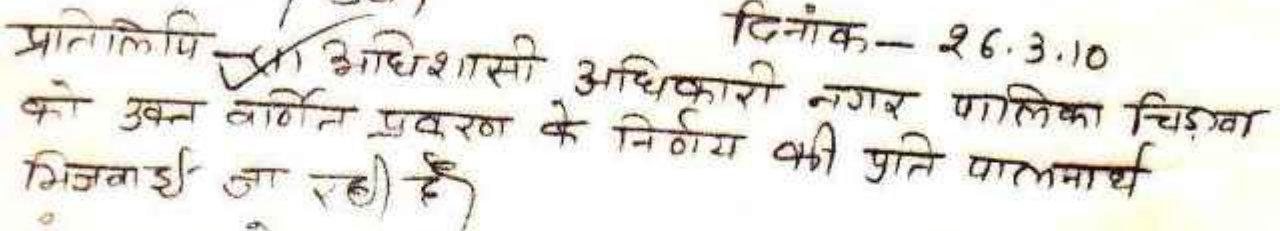 दिनांक - 26.3.10
प्रतिलिपि श्री अधिशासी अधिकारी नगर पालिका चिड़ावा
को उक्त वर्णित प्रकरण के निर्णय की प्रति पालनार्थ
भिजवाई जा रही है